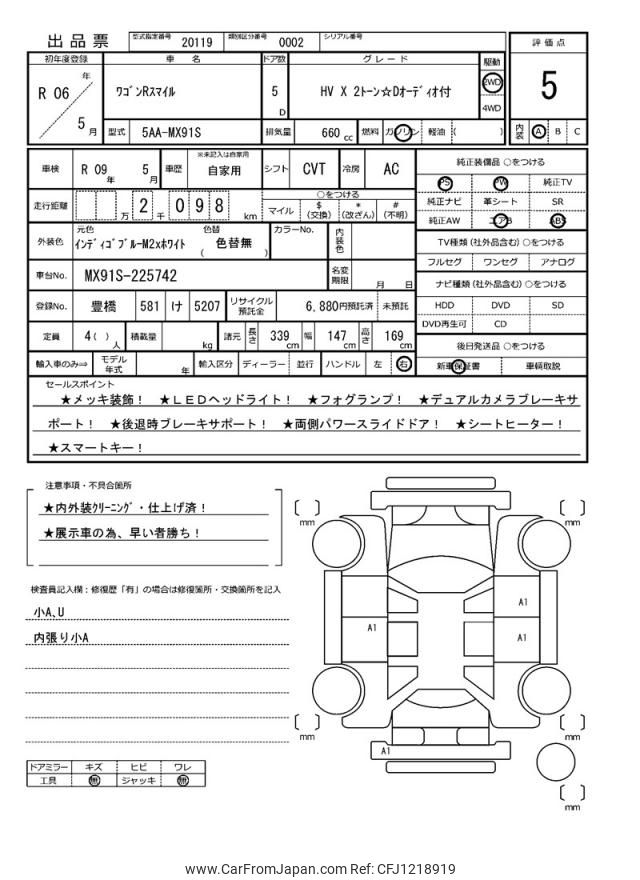 出品票 型式指定番号 20119 類別区分番号 0002 シリアル番号
評価点
5
内装 A B C
初年度登録 車名 ドア数 グレード 駆動
R 06 年 5 月
ワゴンRスマイル 5 D HV X 2トーン☆Dオーディオ付 2WD 4WD
型式 5AA-MX91S 排気量 660 cc 燃料 ガソリン 軽油 ( )
車検 R 09 年 5 月 車歴 ※未記入は自家用 自家用 シフト CVT 冷房 AC
走行距離 万 2 千 0 9 8 km
○をつける
マイル $ (交換) * (改ざん) # (不明)
外装色 元色 インディゴブルーM2xホワイト 色替 ( 色替無 ) カラーNo. 内装色
車台No. MX91S-225742 名変期限 月 日
登録No. 豊橋 581 け 5207 リサイクル預託金 6,880円預託済 未預託
定員 4( ) 人 積載量 kg 諸元 長さ 339 cm 幅 147 cm 高さ 169 cm
輸入車のみ⇒ モデル年式 年 輸入区分 ディーラー 並行 ハンドル 左 右
純正装備品 ○をつける
PS PW 純正TV
純正ナビ 革シート SR
純正AW エアB ABS
TV種類 (社外品含む) ○をつける
フルセグ ワンセグ アナログ
ナビ種類 (社外品含む) ○をつける
HDD DVD SD
DVD再生可 CD
後日発送品 ○をつける
新車保証書 車輌取説
セールスポイント
★メッキ装飾! ★LEDヘッドライト! ★フォグランプ! ★デュアルカメラブレーキサ
ポート! ★後退時ブレーキサポート! ★両側パワースライドドア! ★シートヒーター!
★スマートキー!
注意事項・不具合箇所
★内外装クリーニング・仕上げ済!
★展示車の為、早い者勝ち!
検査員記入欄:修復歴「有」の場合は修復箇所・交換箇所を記入
小A,U
内張り小A
ドアミラー キズ ヒビ ワレ
工具 無 ジャッキ 無
mm mm
A1
A1 A1
mm mm
A1
mm
www.CarFromJapan.com Ref: CFJ1218919